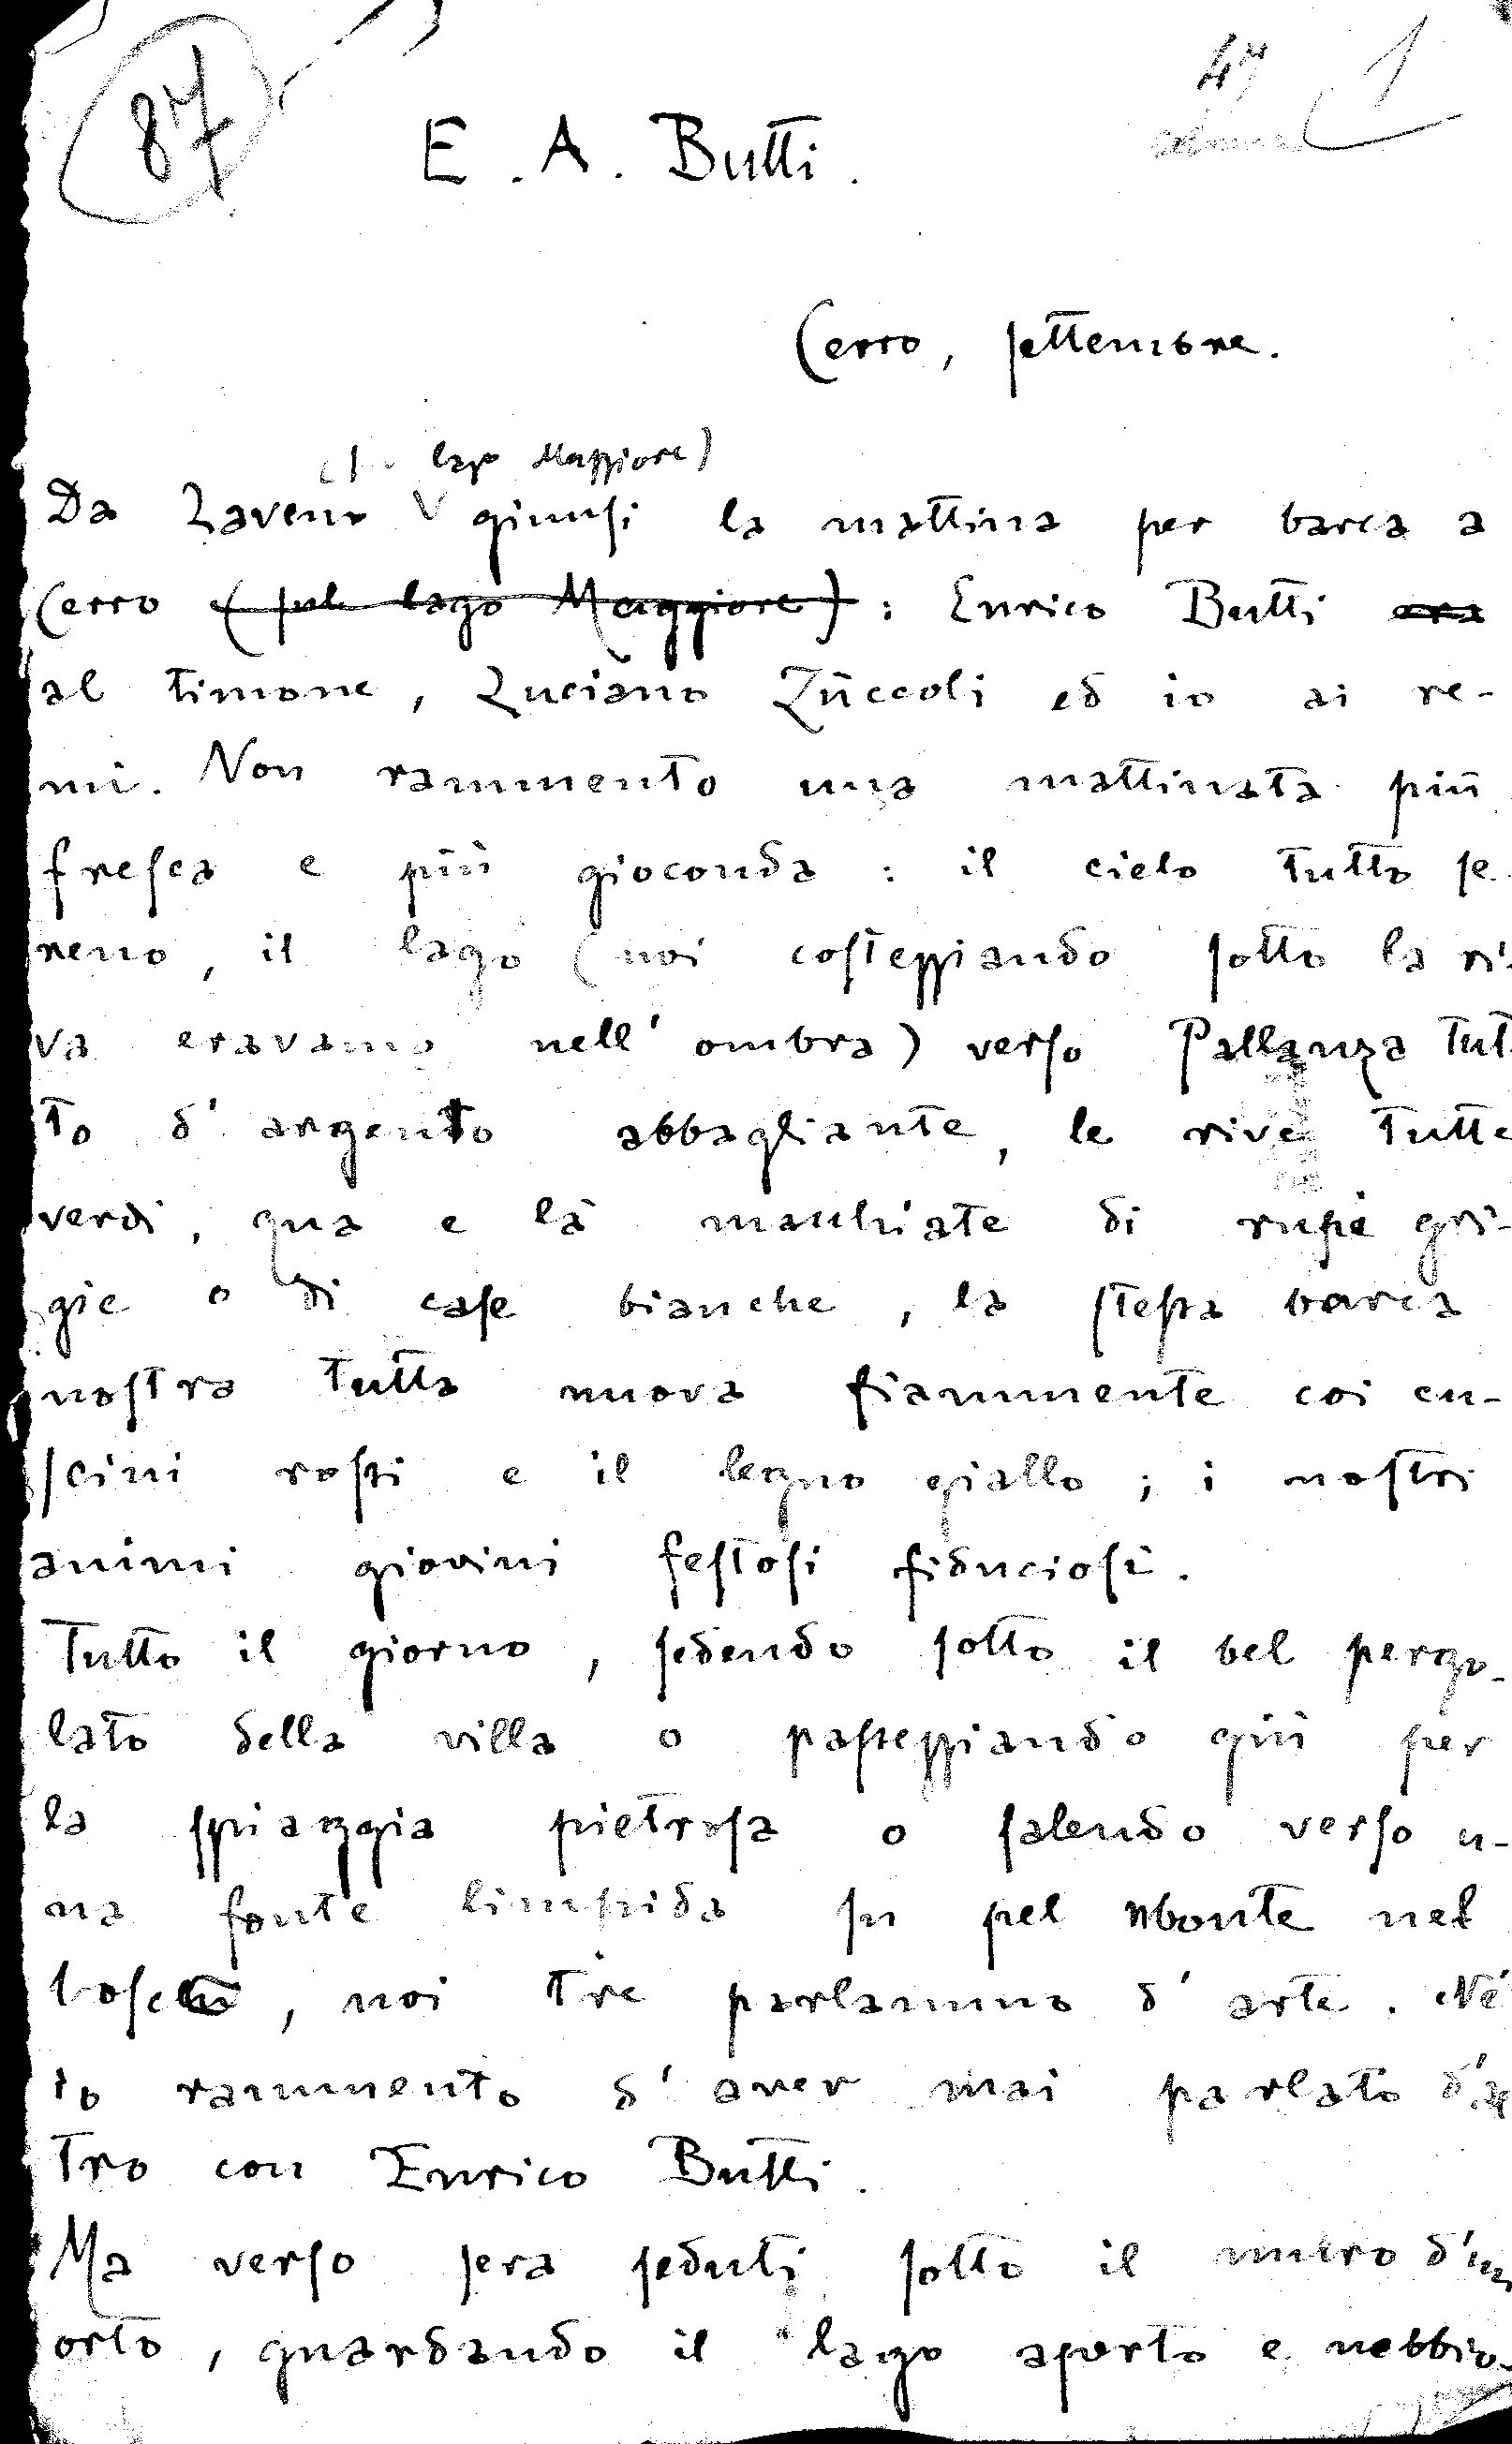 87
47 1
E. A. Butti.
Cerro, settembre.
lago Maggiore)
Da Laveno giunsi la mattina per barca a
Cerro (sul lago Maggiore): Enrico Butti era
al timone, Luciano Zùccoli ed io ai re-
mi. Non rammento una mattinata più
fresca e più gioconda: il cielo tutto se-
reno, il lago (noi costeggiando sotto la ri-
va eravamo nell'ombra) verso Pallanza tut-
to d'argento abbagliante, le rive tutte
verdi, qua e là macchiate di rupi gri-
gie o di case bianche, la stessa barca
nostra tutta nuova fiammante coi cu-
scini rossi e il legno giallo; i nostri
animi giovini festosi fiduciosi.
Tutto il giorno, sedendo sotto il bel pergo-
lato della villa o passeggiando giù per
la spiaggia pietrosa o salendo verso u-
na fonte limpida su pel monte nel
bosco, noi tre parlammo d'arte. Né
io rammento d'aver mai parlato d'al
tro con Enrico Butti.
Ma verso sera seduti sotto il muro d'un
orto, guardando il lago aperto e nebbio-